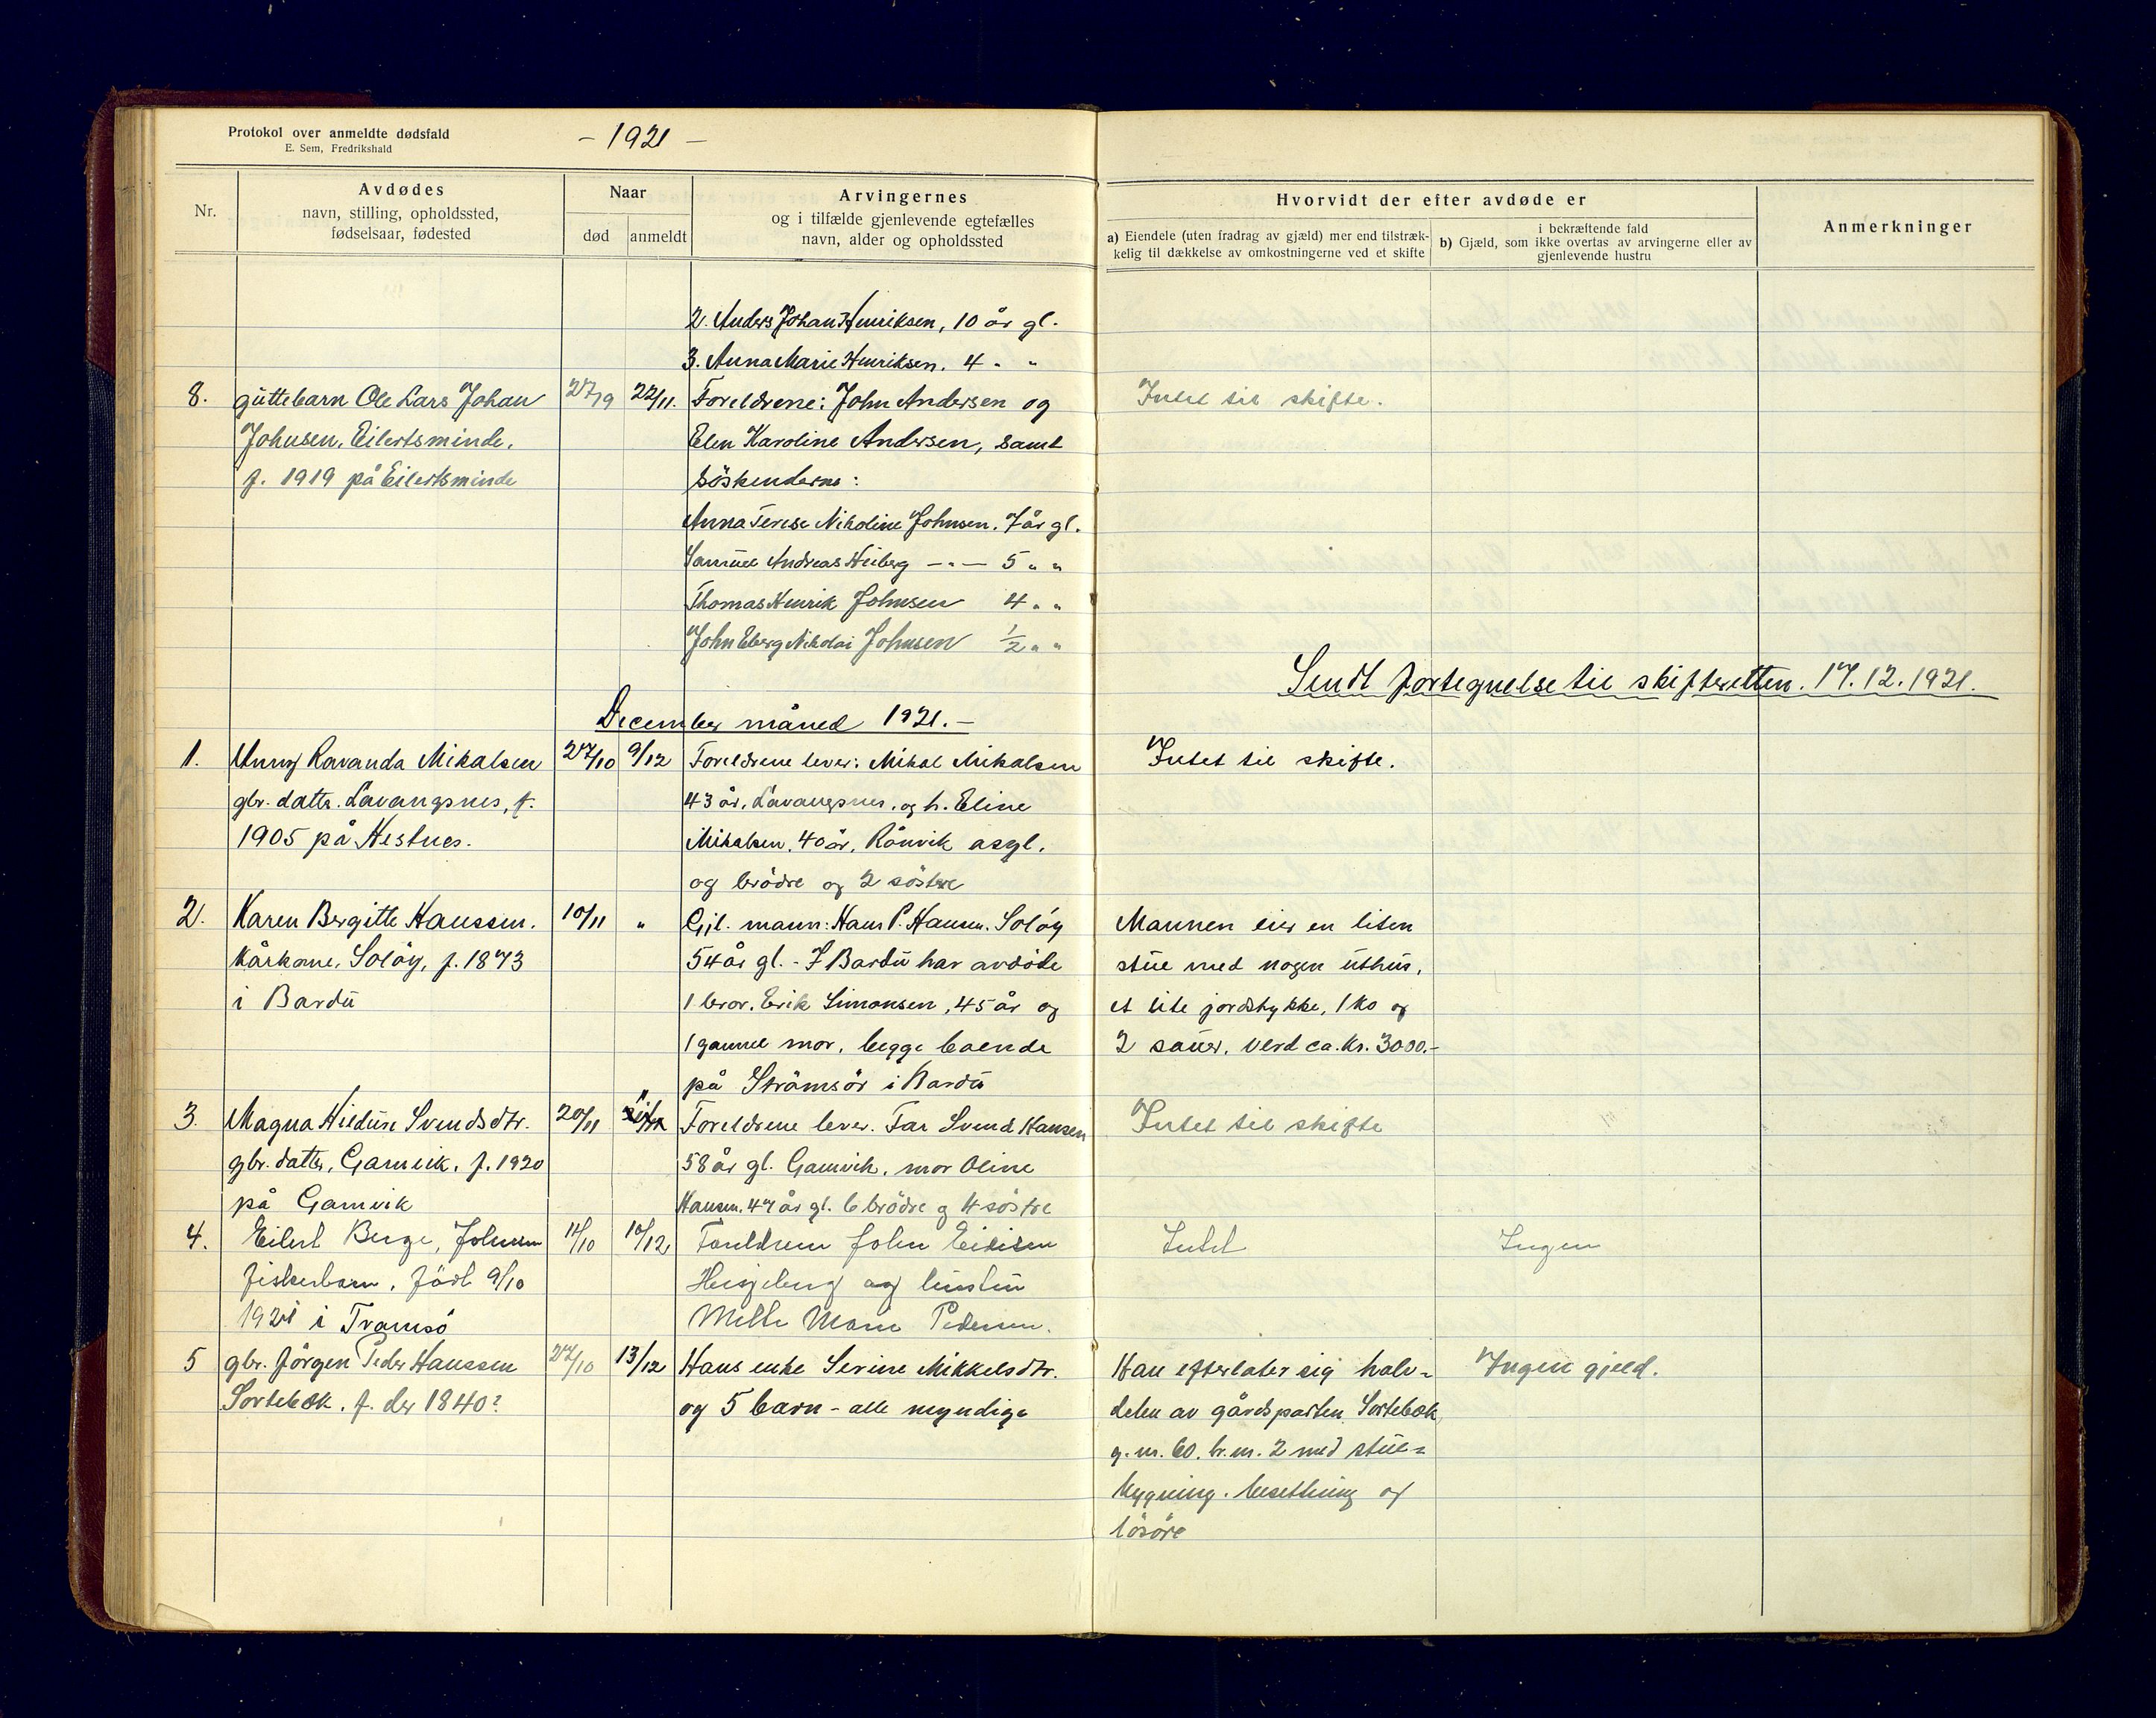 Protokol over anmeldte dødsfald
E. Sem, Fredrikshald
- 1921 -
Nr.
Avdødes
navn, stilling, opholdssted,
fødselsaar, fødested
Naar
død
anmeldt
Arvingernes
og i tilfælde gjenlevende egtefælles
navn, alder og opholdssted
Hvorvidt der efter avdøde er
a) Eiendele (uten fradrag av gjæld) mer end tilstræk-
kelig til dækkelse av omkostningerne ved et skifte
i bekræftende fald
b) Gjæld, som ikke overtas av arvingerne eller av
gjenlevende hustru
Anmerkninger
2. Anders Johan Henriksen, 10 år gl.
3. Anna Marie Henriksen. 4 " "
8. guttebarn Ole Lars Johan 27/9 22/11. Foreldrene: John Andersen og Intet til skifte.
Johnsen, Eilertsminde. Elen Karoline Andersen, samt
f. 1919 på Eilertsminde söskenderne:
Anna Terese Nikoline Johnsen. 7 år gl.
Samuel Andreas Heiberg -"- 5 " "
Thomas Henrik Johnsen 4 " "
John Eberg Nikolai Johnsen 1/2 " "
Sendt fortegnelse til skifteretten. 17.12.1921.
December måned 1921.-
1. Unny Ravanda Mikalsen 27/10 9/12 Foreldrene lever: Mikal Mikalsen Intet til skifte.
gbr. datter. Lavangsnes, f. 43 år, Lavangsnes, og h. Eline
1905 på Hestnes. Mikalsen, 40 år, Rånvik asyl.
og brödre og 2 söstre
2. Karen Bergitte Hanssen. 10/11 " Gjl. mann: Hans P. Hansen. Solöy Mannen eier en liten
Kårkone, Solöy, f. 1873 54 år gl. - I Bardu har avdöde stue med nogen uthus,
i Bardu 1 bror. Erik Simonsen, 45 år og et lite jordstykke, 1 ko og
1 gammel mor, begge boende 2 sauer. verd ca. kr. 3000.-
på Strömsör i Bardu
3. Magna Hildur Svendsdtr. 20/11 " Foreldrene lever. Far Svend Hansen Intet til skifte
gbr. datter, Gamvik. f. 1920 58 år gl. Gamvik, mor Oline
på Gamvik Hansen. 47 år gl. 6 brödre og 4 söstre
4. Eilert Berge, Johnsen 11/10 10/12 Foreldrene John Intet Ingen
fiskerbarn, född 9/10 og hustru
1921 i Tromsö Marie Pedersen.
5 gbr. Jörgen Peder Hanssen 27/10 13/12 Hans enke Serine Mikkelsdtr. Han efterlater sig halv- Ingen gjeld.
Sortebek. f. der 1840? og 5 barn - alle myndige delen av gårdsparten Sortebek
g.nr. 60. br.nr. 2 med stue-
bygning. besetning og
lösöre